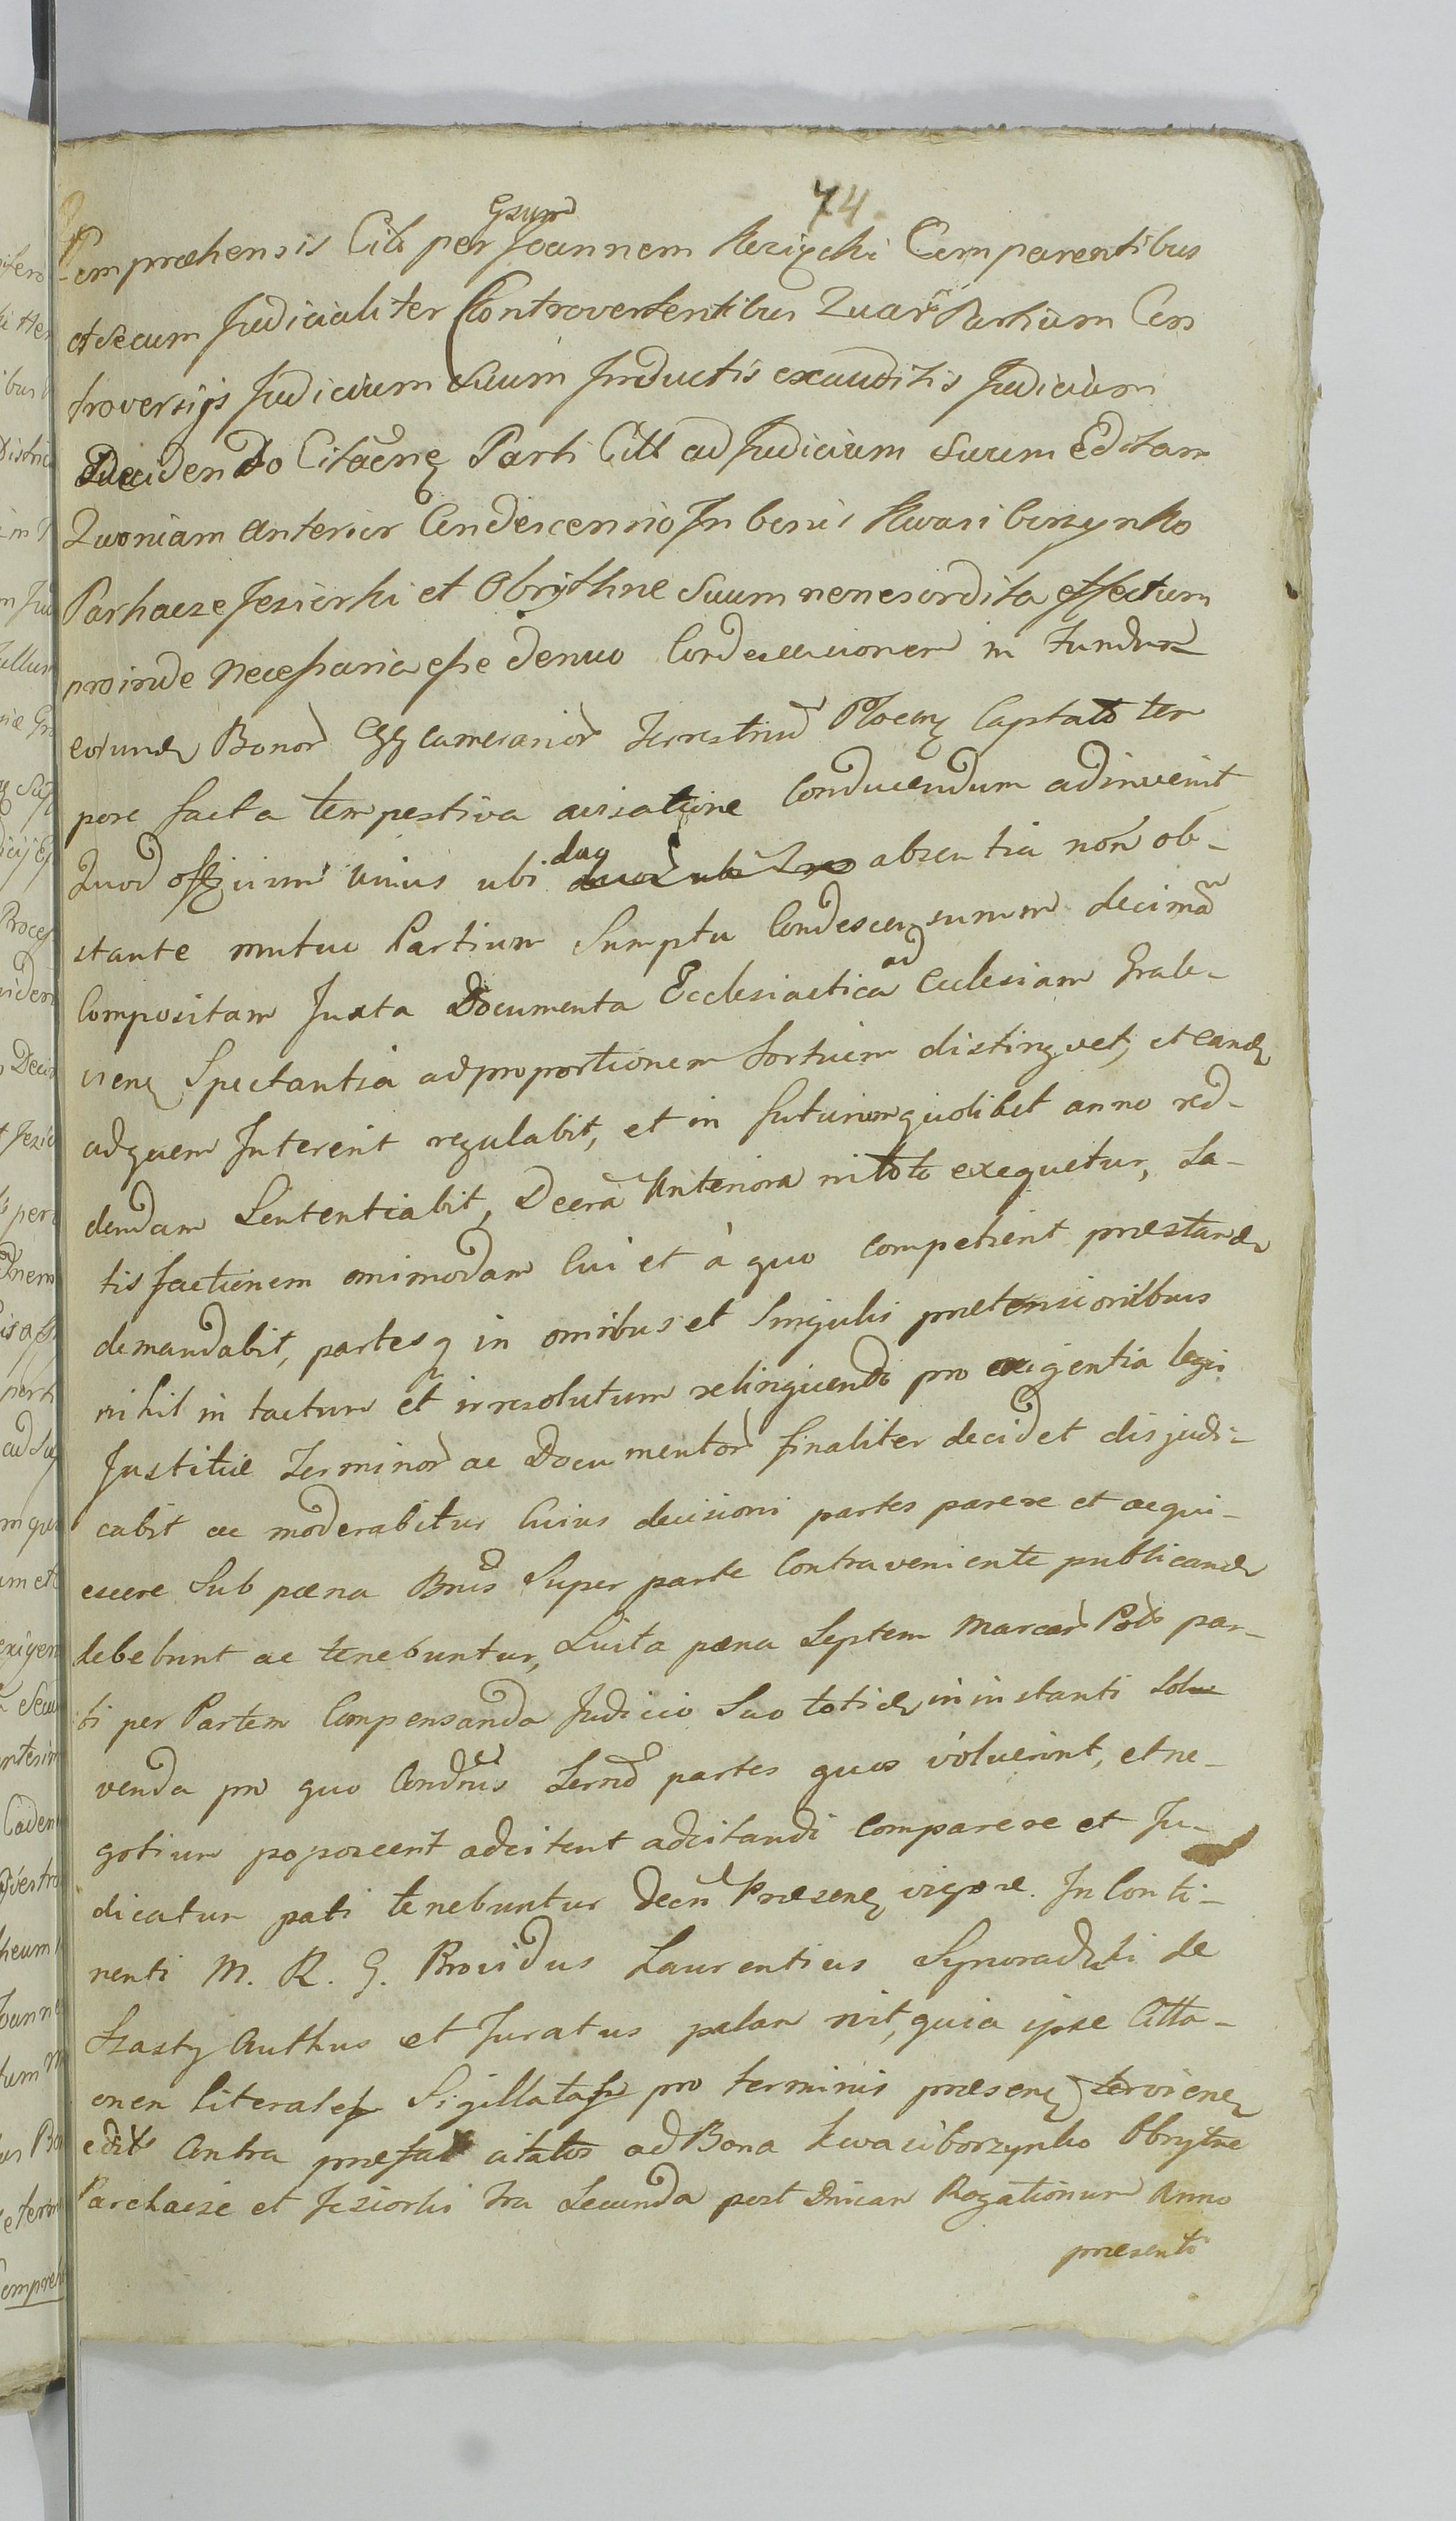 74
Gsum
Compraehensis Citt per Joannem Kczizcki Comparentibus
et Secum Judicialiter Controvertentibus Quar Partium Con
troversijs Judicium Suum Inductis exauditis Judicium
Decidendo Citaone Parti Citt ad Judicium Suum Editam
Quoniam anterior Condescensio In bonis Kwasiborzynko
Parhacze Jeziorki et Obrythne Suum non esordita effectum
proinde necessaria esse denuo Condescensionem in Fundum
eorund Bonor Camerarior Terrestriu Plocen Captato tem
pore facta tempestiva avisatione Conducendum adinvenit
Quod officium unius ubi duo absentia non ob-
stante mutuo Partium Sumptu Condescensurum decimam
Compositam Juxta Documenta Ecclesiastica ad Ecclesiam Grale-
vien Spectantia ad proportionem Sortium distingvet, et eand
ad quem Intererit regulabit, et in futurum quolibet anno red-
dendam Sententiabit, Decra Anteriora in toto exequetur, Sa-
tisfactionem omimodam Cui et à quo competient praestand
demandabit, partesq in omnibus et Singulis praetensionibus
nihil in tactum et irresolutum relinquendo pro exigentia legis
Justitiae Terminor ac Documentor finaliter decidet disjudi-
cabit ac moderabitur Cuius decisioni partes parere et acqui-
escere Sub paena Bnis Super parte Contraveniente publicand
debebunt ac tenebuntur, Luita paena Septem Marcar Pol par-
ti per Partem Compensanda Judicio Suo totid in instanti Solu
venda pro quo Condnis Termo partes quos voluerint, et ne-
gotium poposcerit adcitent adcitandi Comparere et Ju-
dicatum pati tenebuntur Decri Praesen vigore. In Conti-
nenti M. R. G. Providus Laurentius Synoradzki de
Szasty Authus et Juratus palam nit, quia ipse Citta-
onen literales Sigillatas pro terminis praesen tervienen
edit Contra praefat citatos ad Bona Kwasiborzynko Obrytne
Parchacze et Jeziorki fra Secunda post Dnicam Rogationum Anno
praesenti